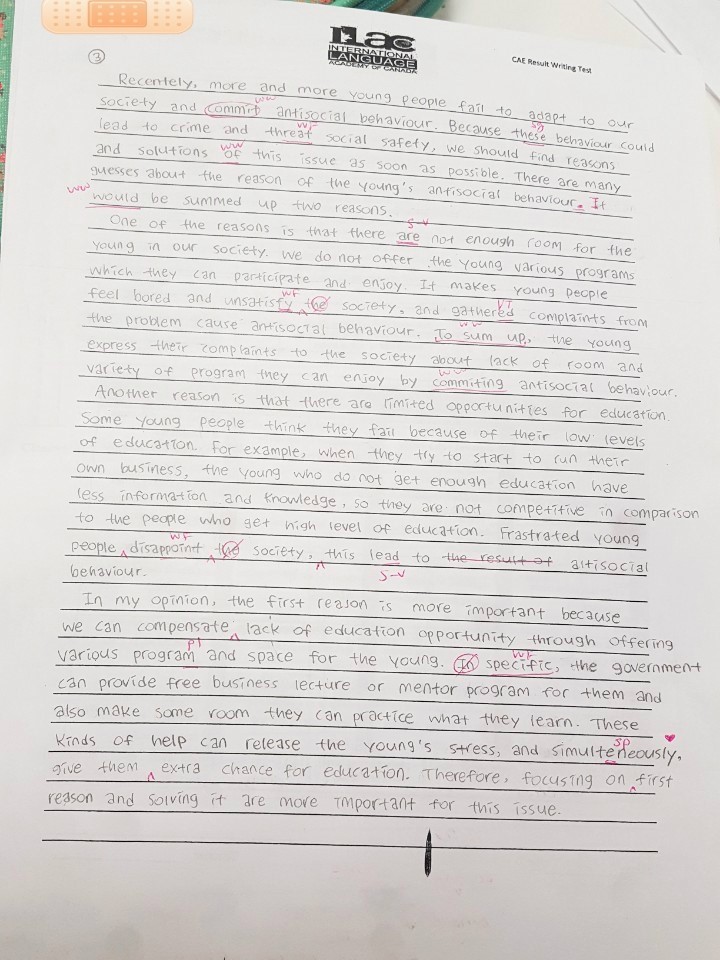 ILac
INTERNATIONAL
LANGUAGE
ACADEMY OF CANADA
CAE Result Writing Test
3
Recentely, more and more young people fail to adapt to our
ww
society and commit antisocial behaviour. Because these behaviour could
WF sp
lead to crime and threat social safety, we should find reasons
ww
and solutions of this issue as soon as possible. There are many
guesses about the reason of the young's antisocial behaviour. It
ww
would be summed up two reasons.
S-V
One of the reasons is that there are not enough room for the
young in our society. We do not offer the young various programs
which they can participate and enjoy. It makes young people
WF VT
feel bored and unsatisfy the society, and gathered complaints from
ww
the problem cause antisocial behaviour. To sum up, the young
express their complaints to the society about lack of room and
ww
variety of program they can enjoy by commiting antisocial behaviour.
Another reason is that there are limited opportunities for education.
Some young people think they fail because of their low levels
of education. For example, when they try to start to run their
own business, the young who do not get enough education have
less information and knowledge, so they are not competitive in comparison
to the people who get high level of education. Frastrated young
WF
people disappoint the society, this lead to the result of altisocial
S-V
behaviour.
In my opinion, the first reason is more important because
we can compensate lack of education opportunity through offering
pl WF
various program and space for the young. In specific, the government
can provide free business lecture or mentor program for them and
also make some room they can practice what they learn. These
sp
kinds of help can release the young's stress, and simulteneously,
give them extra chance for education. Therefore, focusing on first
reason and solving it are more important for this issue.